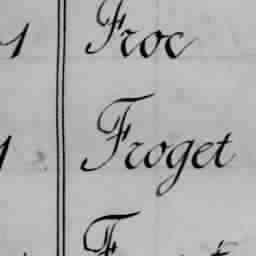 1 Froc
1 Froget